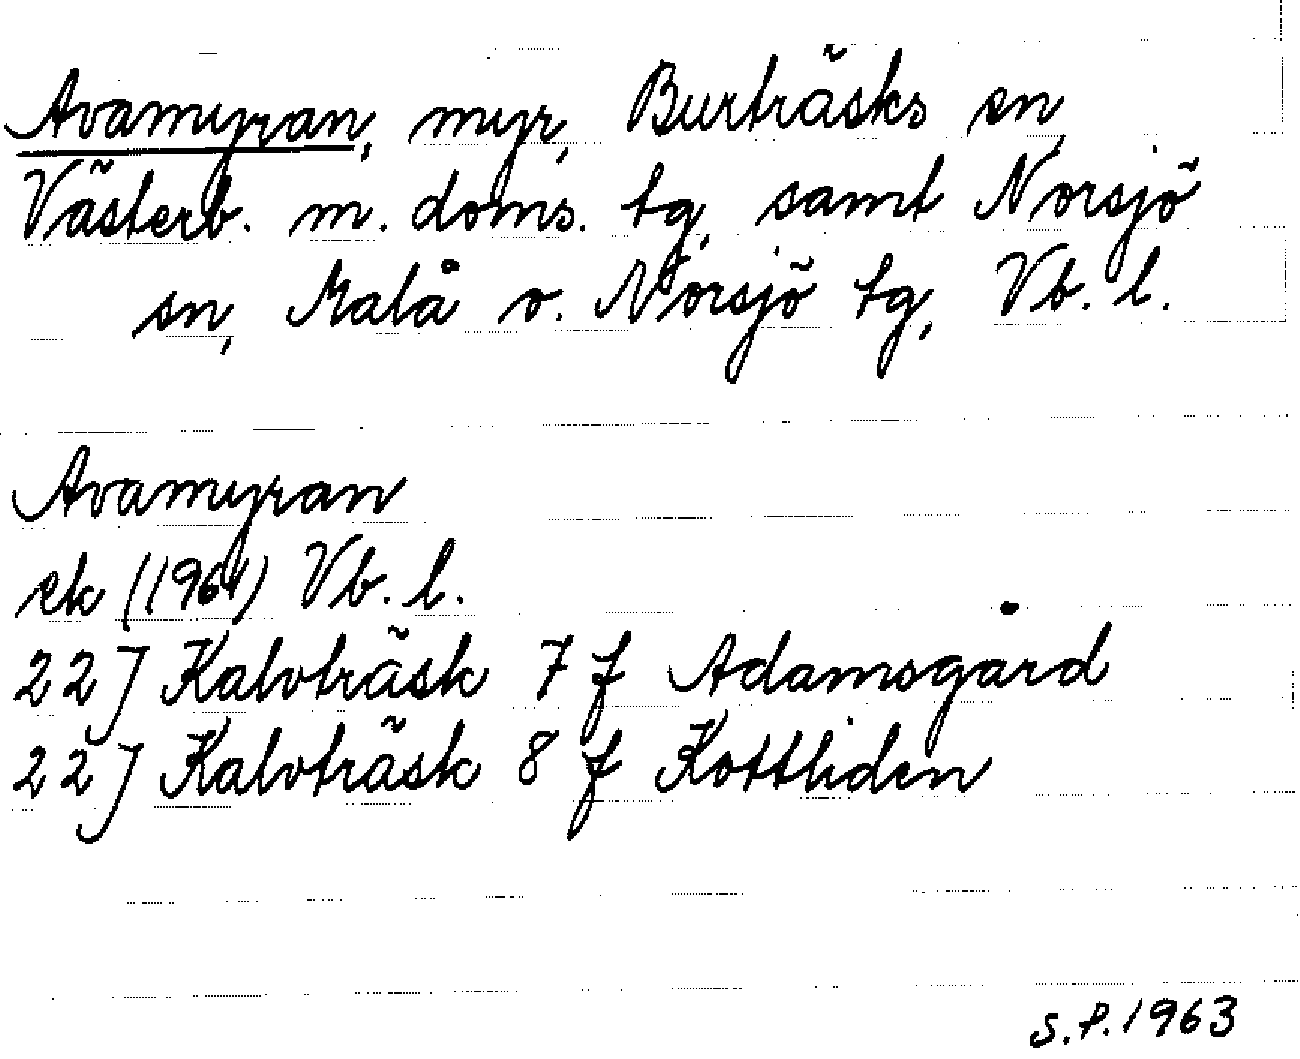 Avamyran, myr, Burträsks sn,
Västerb. m. doms. tg, samt Norsjö
sn, Malå o. Norsjö tg, Vb. l.
Avamyran
ek (1961) Vb. l.
22J Kalvträsk 7 f Adamsgård
22J Kalvträsk 8 f Kottliden
S.P. 1963